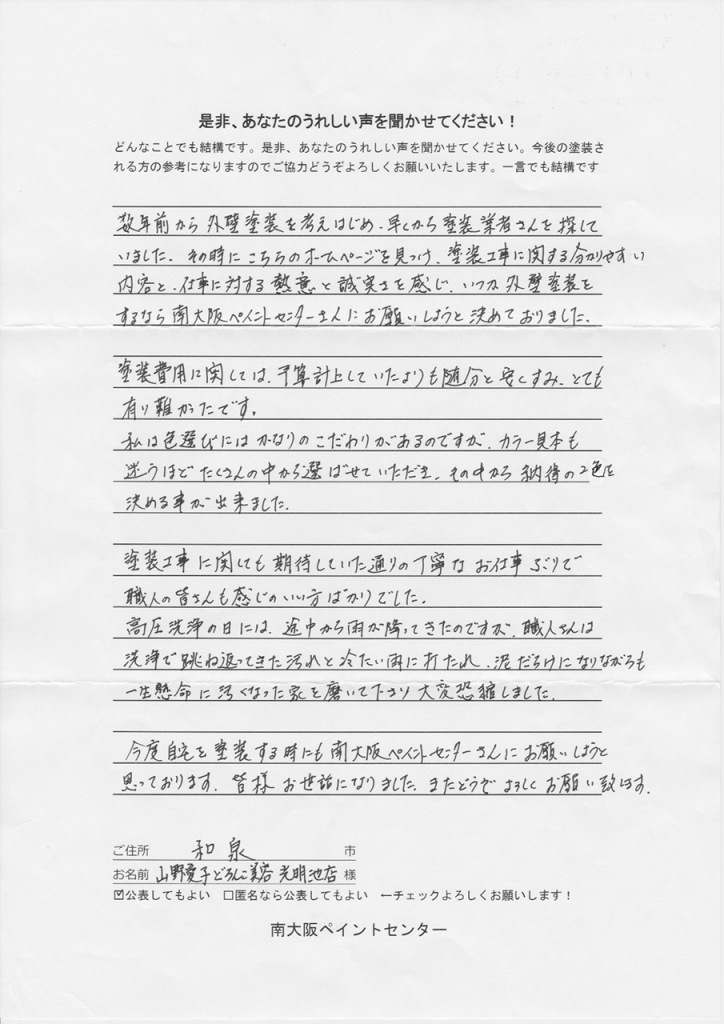 是非、あなたのうれしい声を聞かせてください！
どんなことでも結構です。是非、あなたのうれしい声を聞かせてください。今後の塗装さ
れる方の参考になりますのでご協力どうぞよろしくお願いいたします。一言でも結構です
数年前から外壁塗装を考えはじめ、早くから塗装業者さんを探して
いました。その時にこちらのホームページを見つけ、塗装工事に関する分かりやすい
内容と、仕事に対する熱意と誠実さを感じ、いつか外壁塗装を
するなら南大阪ペイントセンターさんにお願いしようと決めておりました。
塗装費用に関しては、予算計上していたよりも随分と安くすみ、とても
有り難かったです。
私は色選びにはかなりのこだわりがあるのですが、カラー見本も
迷うほどたくさんの中から選ばせていただき、その中から納得の2色を
決める事が出来ました。
塗装工事に関しても期待していた通りの丁寧なお仕事ぶりで
職人の皆さんも感じのいい方ばかりでした。
高圧洗浄の日には、途中から雨が降ってきたのですが、職人さんは
洗浄で跳ね返ってきた汚れと冷たい雨に打たれ、泥だらけになりながらも
一生懸命に汚くなった家を磨いて下さり大変恐縮しました。
今度自宅を塗装する時にも南大阪ペイントセンターさんにお願いしようと
思っております。皆様お世話になりました。またどうぞよろしくお願い致します。
ご住所 和泉 市
お名前 山野愛子どろんこ美容 光明池店 様
☑公表してもよい □匿名なら公表してもよい ←チェックよろしくお願いします！
南大阪ペイントセンター